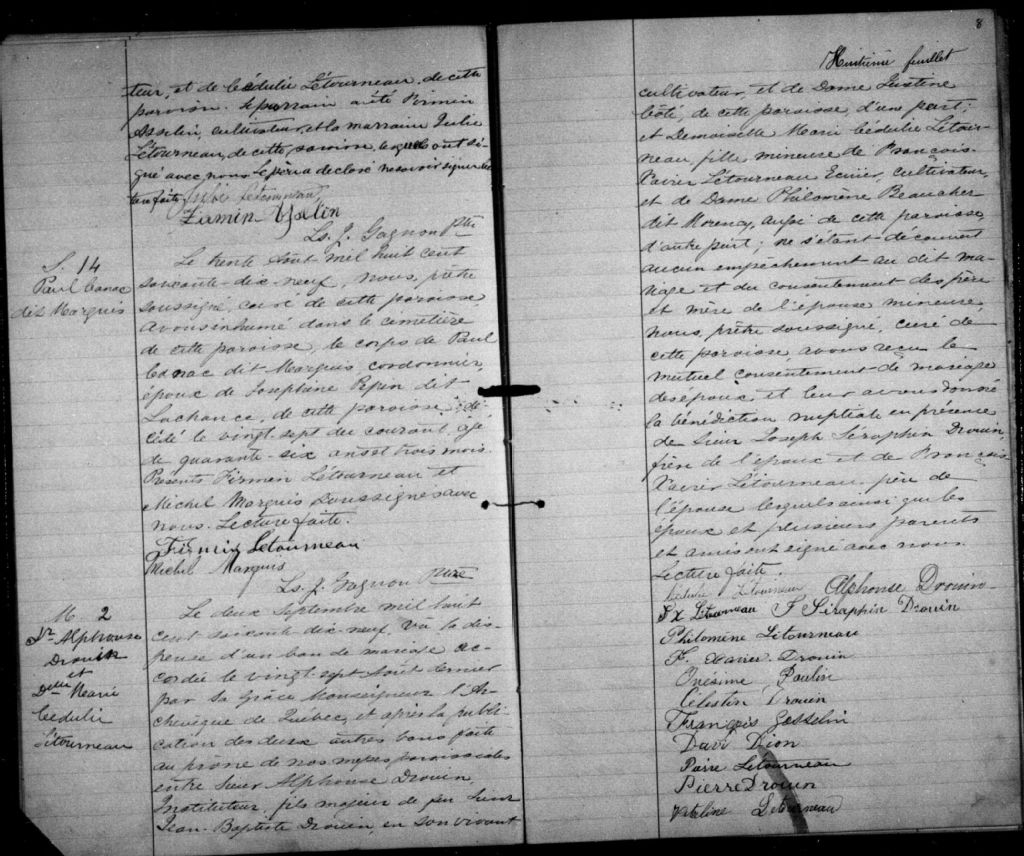 teur, et de Cédulie Létourneau, de cette
paroisse. Le parrain a été Firmin
Asselin, cultivateur, et la marraine Julie
Létourneau, de cette paroisse, lesquels ont si-
gné avec nous. Le père a déclaré ne savoir signer. Lec-
ture faite. Julie Létourneau
Firmin Asselin
Ls. J. Gagnon Ptre
S. 14
Paul Canac
dit Marquis
Le trente août mil huit cent
soixante-dix-neuf, nous, prêtre
soussigné, curé de cette paroisse
avons inhumé dans le cimetière
de cette paroisse, le corps de Paul
Cannac dit Marquis, cordonnier,
époux de Josephine Pepin dit
Lachance, de cette paroisse, dé-
cédé le vingt-sept du courant, agé
de quarante-six ans et trois mois.
Présents Firmin Létourneau et
Michel Marquis soussignés avec
nous. Lecture faite.
Firmin Letourneau
Michel Marquis
Ls. J. Gagnon Ptre
M. 2
Sr. Alphonse
Drouin
et
Delle Marie
Cédulie
Létourneau
Le deux Septembre mil huit
cent soixante dix-neuf, vu la dis-
pense d'un ban de mariage ac-
cordée le vingt-sept août dernier
par Sa Grâce Monseigneur l'Ar-
chevêque de Québec, et après la publi-
cation des deux autres bans faite
au prône de nos messes paroissiales
entre Sieur Alphonse Drouin,
Instituteur, fils majeur de feu Sieur
Jean-Baptiste Drouin, en son vivant
8
Huitième feuillet
cultivateur, et de Dame Justine
Côté, de cette paroisse, d'une part;
et Demoiselle Marie Cédulie Létour-
neau, fille mineure de François-
Xavier Létourneau Ecuier, cultivateur,
et de Dame Philomène Beaucher
dit Morency, aussi de cette paroisse
d'autre part; ne s'étant découvert
aucun empêchement au dit ma-
riage et du consentement des père
et mère de l'épouse mineure,
nous, prêtre soussigné, curé de
cette paroisse, avons reçu le
mutuel consentement de mariage
des époux et leur avons donné
la bénédiction nuptiale en présence
de Sieur Joseph Séraphin Drouin,
frère de l'époux et de François
Xavier Létourneau, père de
l'épouse lesquels ainsi que les
époux et plusieurs parents
et amis ont signé avec nous.
Lecture faite.
Cédulie Létourneau Alphonse Drouin
F X Létourneau J Séraphin Drouin
Philomène Létourneau
F. Xavier Drouin
Onésime Poulin
Célestin Drouin
François Gosselin
David Dion
Pierre Letourneau
Pierre Drouin
Letourneau